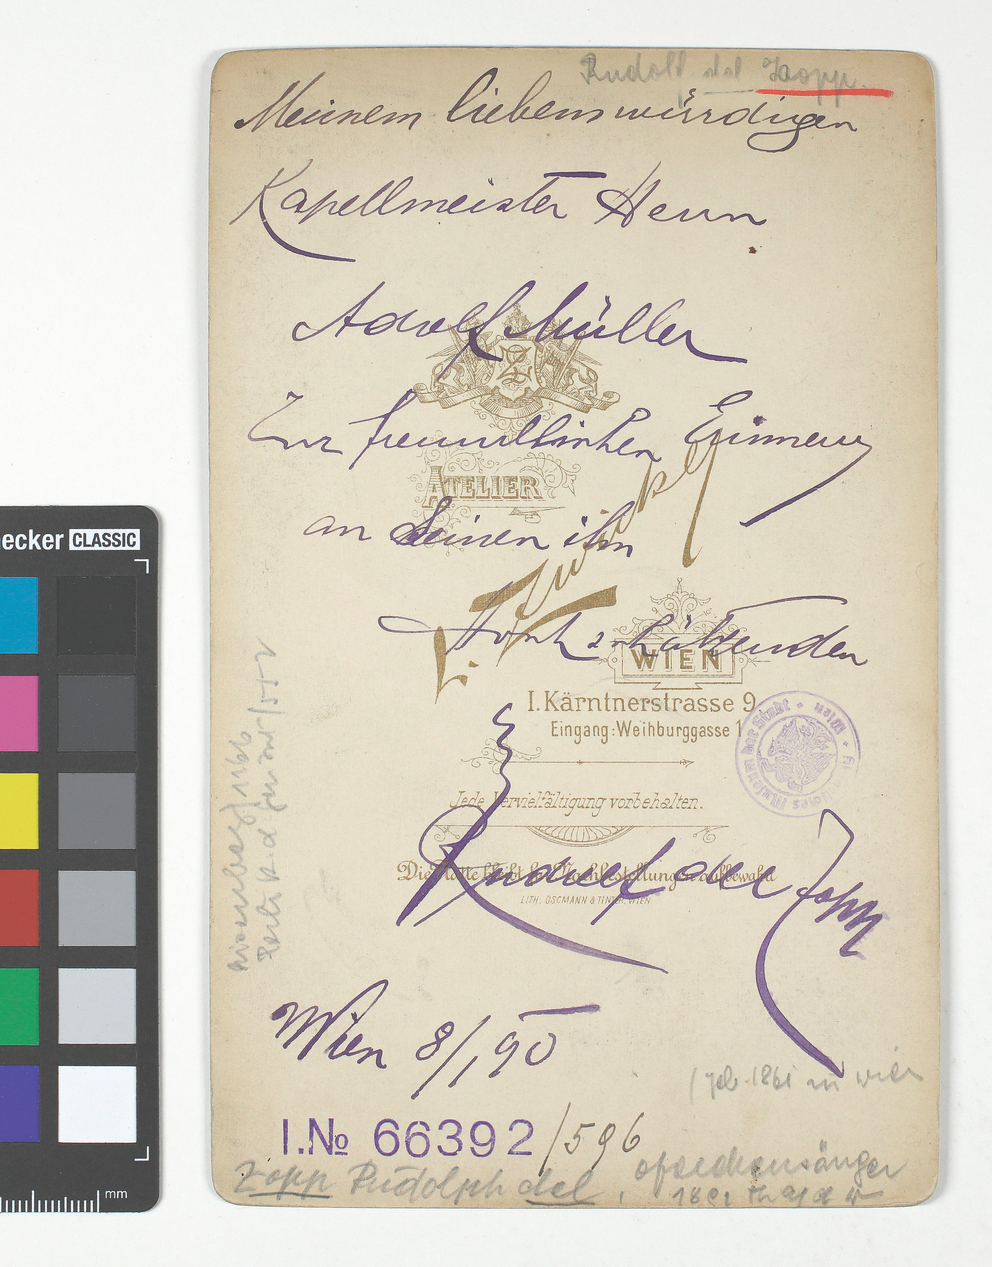 Rudolf del Zopp
Meinem liebenswürdigen
Kapellmeister Herrn
Adolf Müller
Zur freundlichen Erinnerung
ATELIER
an Seinen ihn
hochschätzenden
WIEN
I. Kärntnerstrasse 9
Eingang: Weihburggasse 1
Jede Vervielfältigung vorbehalten.
Die Platte bleibt für Nachbestellungen aufbewahrt
LITH. OSCMANN & TINTER, WIEN
Rudolf del Zopp
Wien 8/1 90
(geb. 1861 in Wien
I.№ 66392/596
Zopp Rudolph del, Operettensänger
ecker CLASSIC
mm